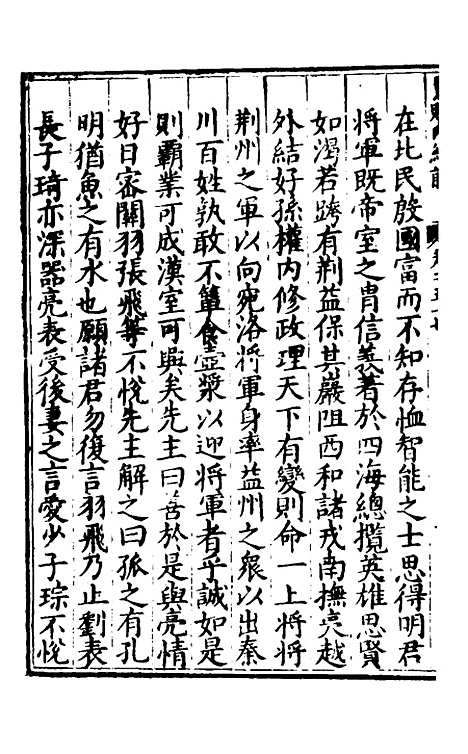 在北民殷國富而不知存恤智能之士思得明君
將軍既帝室之胄信義著於四海總攬英雄思賢
如渴若跨有荆益保其巖阻西和諸戎南撫夷越
外結好孫權内修政理天下有變則命一上將將
荆州之軍以向宛洛將軍身率益州之衆以出秦
川百姓孰敢不簞食壺漿以迎將軍者乎誠如是
則霸業可成漢室可興矣先主曰善於是與亮情
好日密關羽張飛等不悅先主解之曰孤之有孔
明猶魚之有水也願諸君勿復言羽飛乃止劉表
長子琦亦深器亮表受後妻之言愛少子琮不悅